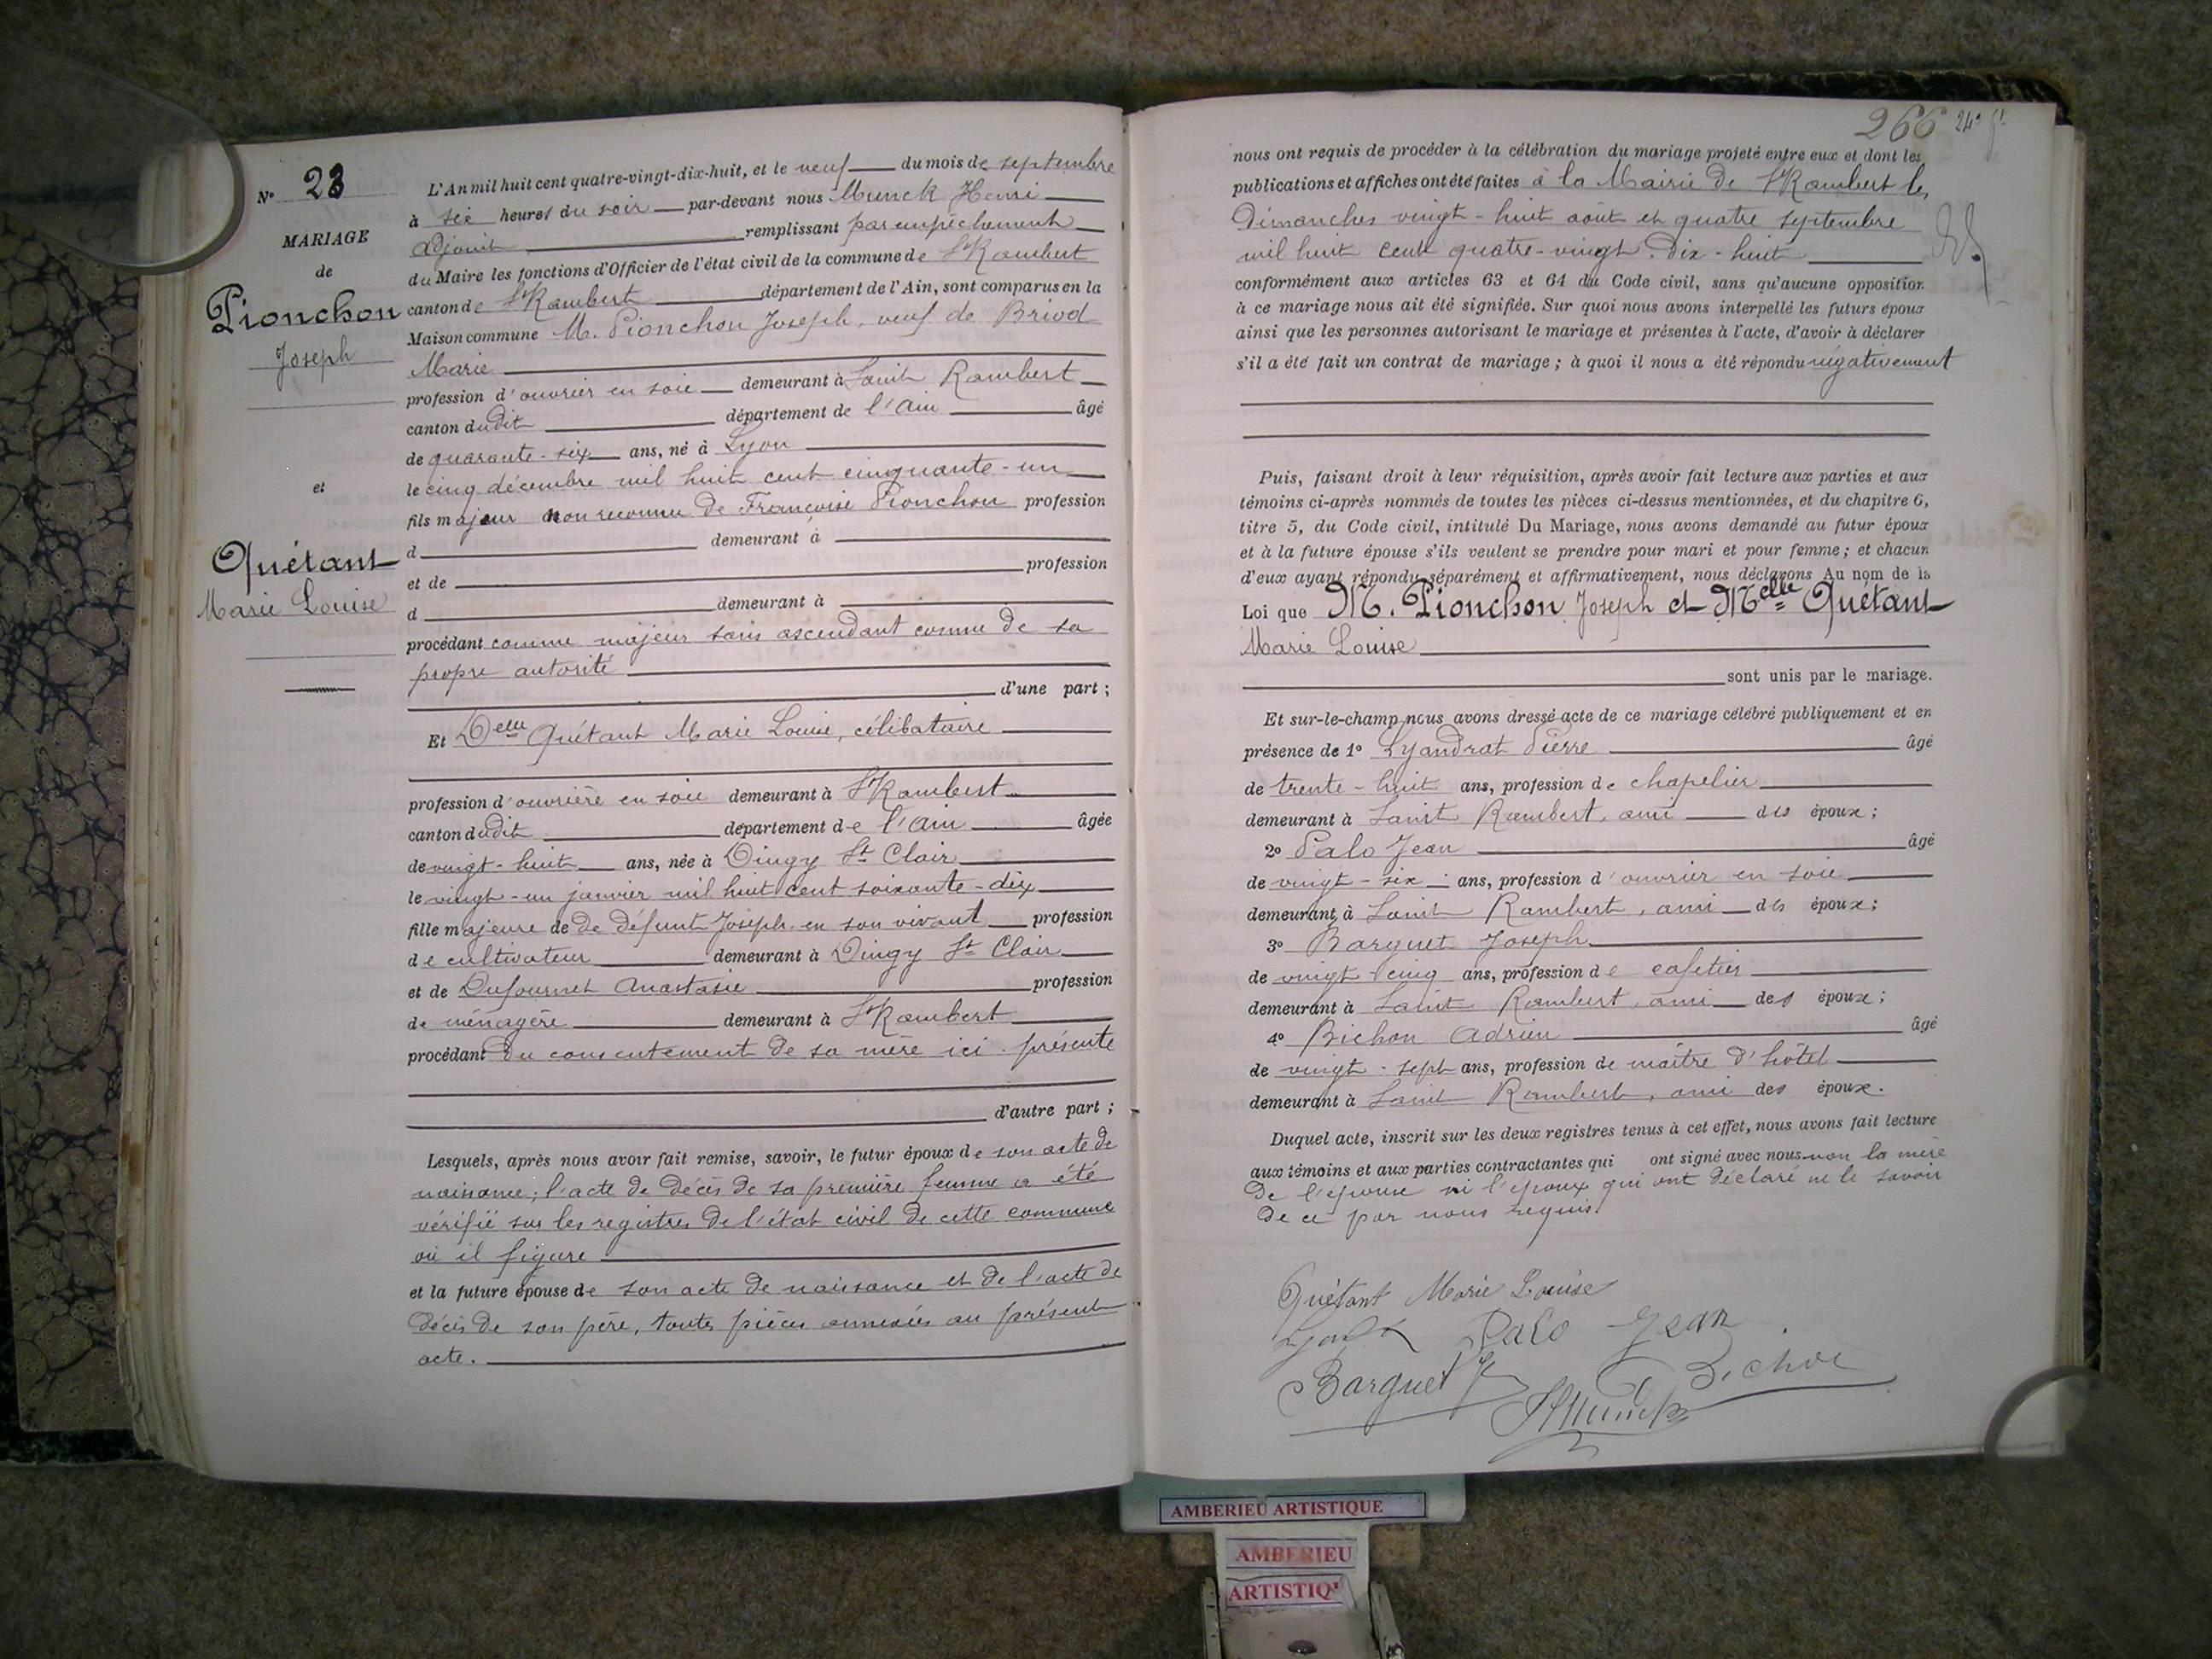 N° 23
MARIAGE
de
Pionchon
Joseph
et
Quétant
Marie Louise
L'An mil huit cent quatre-vingt-dix-huit, et le neuf du mois de septembre
à six heures du soir par-devant nous Munck Henri
adjoint remplissant par empêchement
du Maire les fonctions d'Officier de l'état civil de la commune de St Rambert
canton de St Rambert département de l'Ain, sont comparus en la
Maison commune M. Pionchon Joseph, veuf de Briod
Marie
profession d'ouvrier en soie demeurant à Saint Rambert
canton dudit département de l'Ain âgé
de quarante-six ans, né à Lyon
le cinq décembre mil huit cent cinquante-un
fils majeur non reconnu de Françoise Pionchon profession
d demeurant à
et de profession
d demeurant à
procédant comme majeur sans ascendant connu de sa
propre autorité
d'une part ;
Et Delle Quétant Marie Louise, célibataire
profession d'ouvrière en soie demeurant à St Rambert
canton dudit département de l'Ain âgée
de vingt-huit ans, née à Dingy St Clair
le vingt-un janvier mil huit cent soixante-dix
fille majeure de de défunt Joseph en son vivant profession
de cultivateur demeurant à Dingy St Clair
et de Dufournet Anastasie profession
de ménagère demeurant à St Rambert
procédant du consentement de sa mère ici présente
d'autre part ;
Lesquels, après nous avoir fait remise, savoir, le futur époux de son acte de
naissance ; l'acte de décès de sa première femme a été
vérifié sur les registres de l'état civil de cette commune
où il figure
et la future épouse de son acte de naissance et de l'acte de
décès de son père, toutes pièces annexées au présent
acte.
266 24e
nous ont requis de procéder à la célébration du mariage projeté entre eux et dont les
publications et affiches ont été faites à la Mairie de St Rambert les
Dimanches vingt-huit août et quatre septembre
mil huit cent quatre-vingt-dix-huit
conformément aux articles 63 et 64 du Code civil, sans qu'aucune opposition
à ce mariage nous ait été signifiée. Sur quoi nous avons interpellé les futurs époux
ainsi que les personnes autorisant le mariage et présentes à l'acte, d'avoir à déclarer
s'il a été fait un contrat de mariage ; à quoi il nous a été répondu négativement
Puis, faisant droit à leur réquisition, après avoir fait lecture aux parties et aux
témoins ci-après nommés de toutes les pièces ci-dessus mentionnées, et du chapitre 6,
titre 5, du Code civil, intitulé Du Mariage, nous avons demandé au futur époux
et à la future épouse s'ils veulent se prendre pour mari et pour femme ; et chacun
d'eux ayant répondu séparément et affirmativement, nous déclarons Au nom de la
Loi que M. Pionchon Joseph et Melle Quétant
Marie Louise
sont unis par le mariage.
Et sur-le-champ nous avons dressé acte de ce mariage célébré publiquement et en
présence de 1° Lyandrat Pierre âgé
de trente-huit ans, profession de chapelier
demeurant à Saint Rambert, ami des époux ;
2° Palo Jean âgé
de vingt-six ans, profession d'ouvrier en soie
demeurant à Saint Rambert, ami des époux ;
3° Barguet Joseph
de vingt cinq ans, profession de cafetier
demeurant à Saint Rambert, ami des époux ;
4° Bichon Adrien âgé
de vingt-sept ans, profession de maître d'hôtel
demeurant à Saint Rambert, ami des époux.
Duquel acte, inscrit sur les deux registres tenus à cet effet, nous avons fait lecture
aux témoins et aux parties contractantes qui ont signé avec nous non la mère
de l'épouse ni l'époux qui ont déclaré ne le savoir
de ce par nous requis.
Quétant Marie Louise
Palo Jean
Barguet J
Bichon
HMunck
AMBERIEU ARTISTIQUE
AMBERIEU
ARTISTIQ